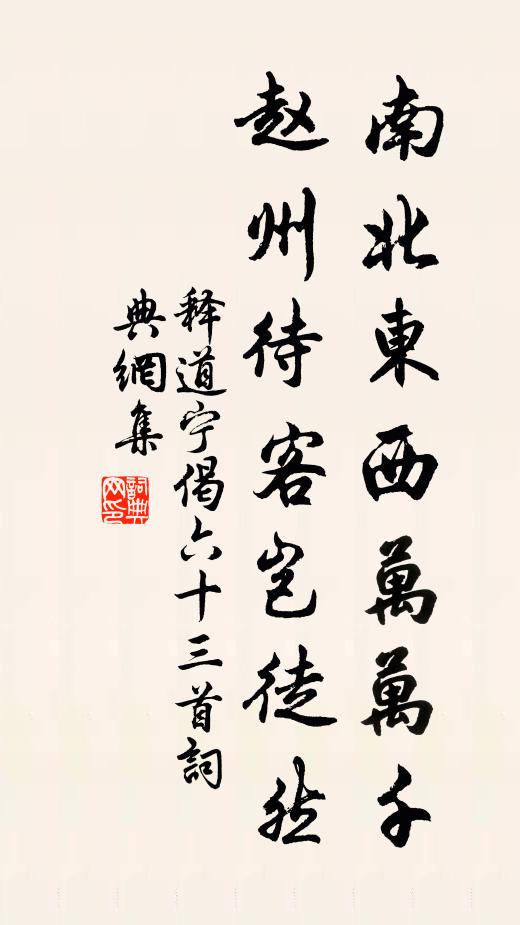 南北東西萬萬千
赵州待客岂徒然
释道宁偈六十三首詞
典網集
詞典网印